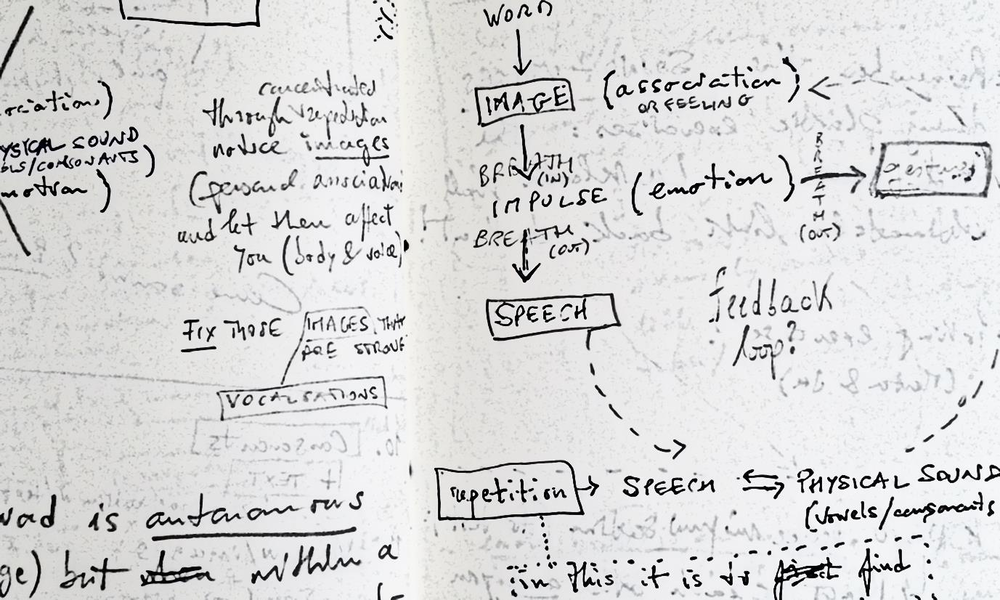 ociation)
YSICAL SOUND
ELS/CONSONANTS)
motion)
concentrated
through repetition
notice images
(personal association
and let them affect
you (body & voice)
FIX THOSE
IMAGES THAT
ARE STRONG
VOCALISATIONS
word is autonomous
ge) but within a
WORD
IMAGE (association)
OR FEELING
BREATH
(IN)
IMPULSE (emotion)
BREATH
(OUT)
BREATH
(OUT)
SPEECH
feedback
loop?
repetition → SPEECH ⇆ PHYSICAL SOUND
(vowels/consonants
in this it is to find